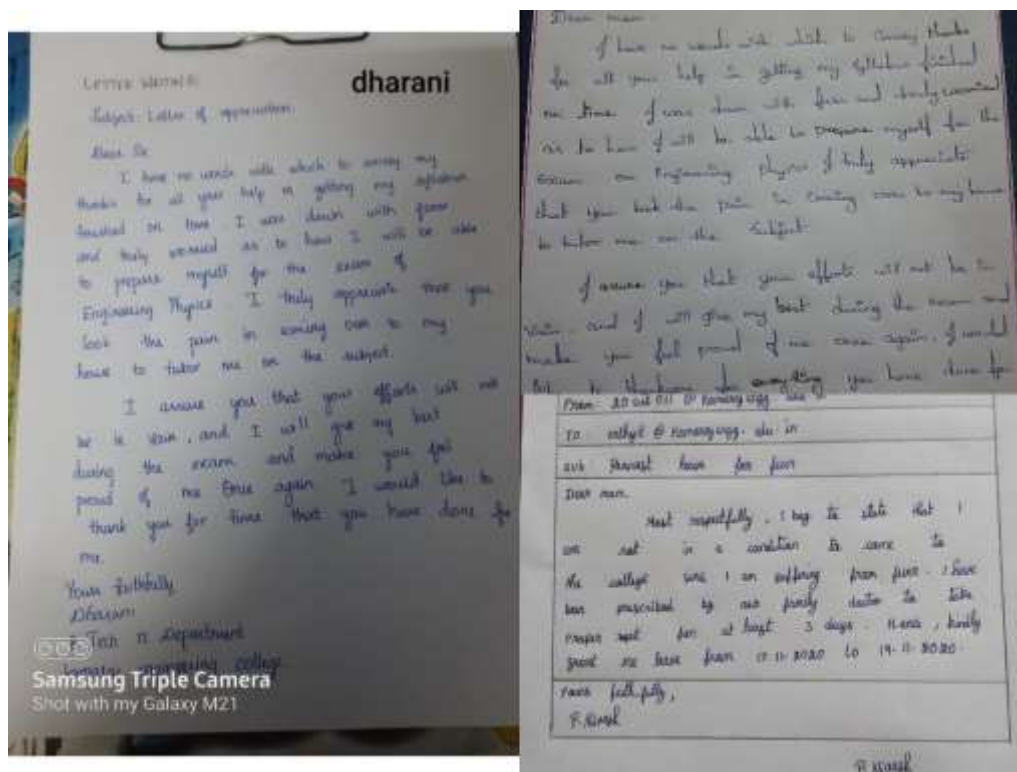 LETTER WRITING
dharani
Subject: Letter of appreciation
Dear Sir
I have no words with which to convey my
thanks for all your help in getting my syllabus
finished on time. I was down with fever
and truly worried as to how I will be able
to prepare myself for the exam of
Engineering Physics. I truly appreciate that you
took the pain in coming over to my
house to tutor me on the subject.
I assure you that your efforts will not
be in vain, and I will give my best
during the exam and make you feel
proud of me Once again I would like to
thank you for time that you have done for
me.
Yours faithfully
Dharani
Tech IT Department
engineering college
Samsung Triple Camera
Shot with my Galaxy M21
Dear mam
I have no words with which to convey thanks
for all your help in getting my syllabus finished
on time. I was down with fever and truly worried
as to how I will be able to prepare myself for the
exam on Engineering physics I truly appreciate
that you took the pain in coming over to my house
to tutor me on the subject.
I assure you that your efforts will not be in
vain, and I will give my best during the exam and
make you feel proud of me once again, I would
like to thank for everything you have done for
From:
To @ edu in
sub leave for fever
Dear mam,
Most respectfully, I beg to state that I
am not in a condition to come to
the college since I am suffering from fever. I have
been prescribed by our family doctor to take
proper rest for at least 3 days. Hence, kindly
grant me leave from 17-11-2020 to 19-11-2020.
yours faithfully,